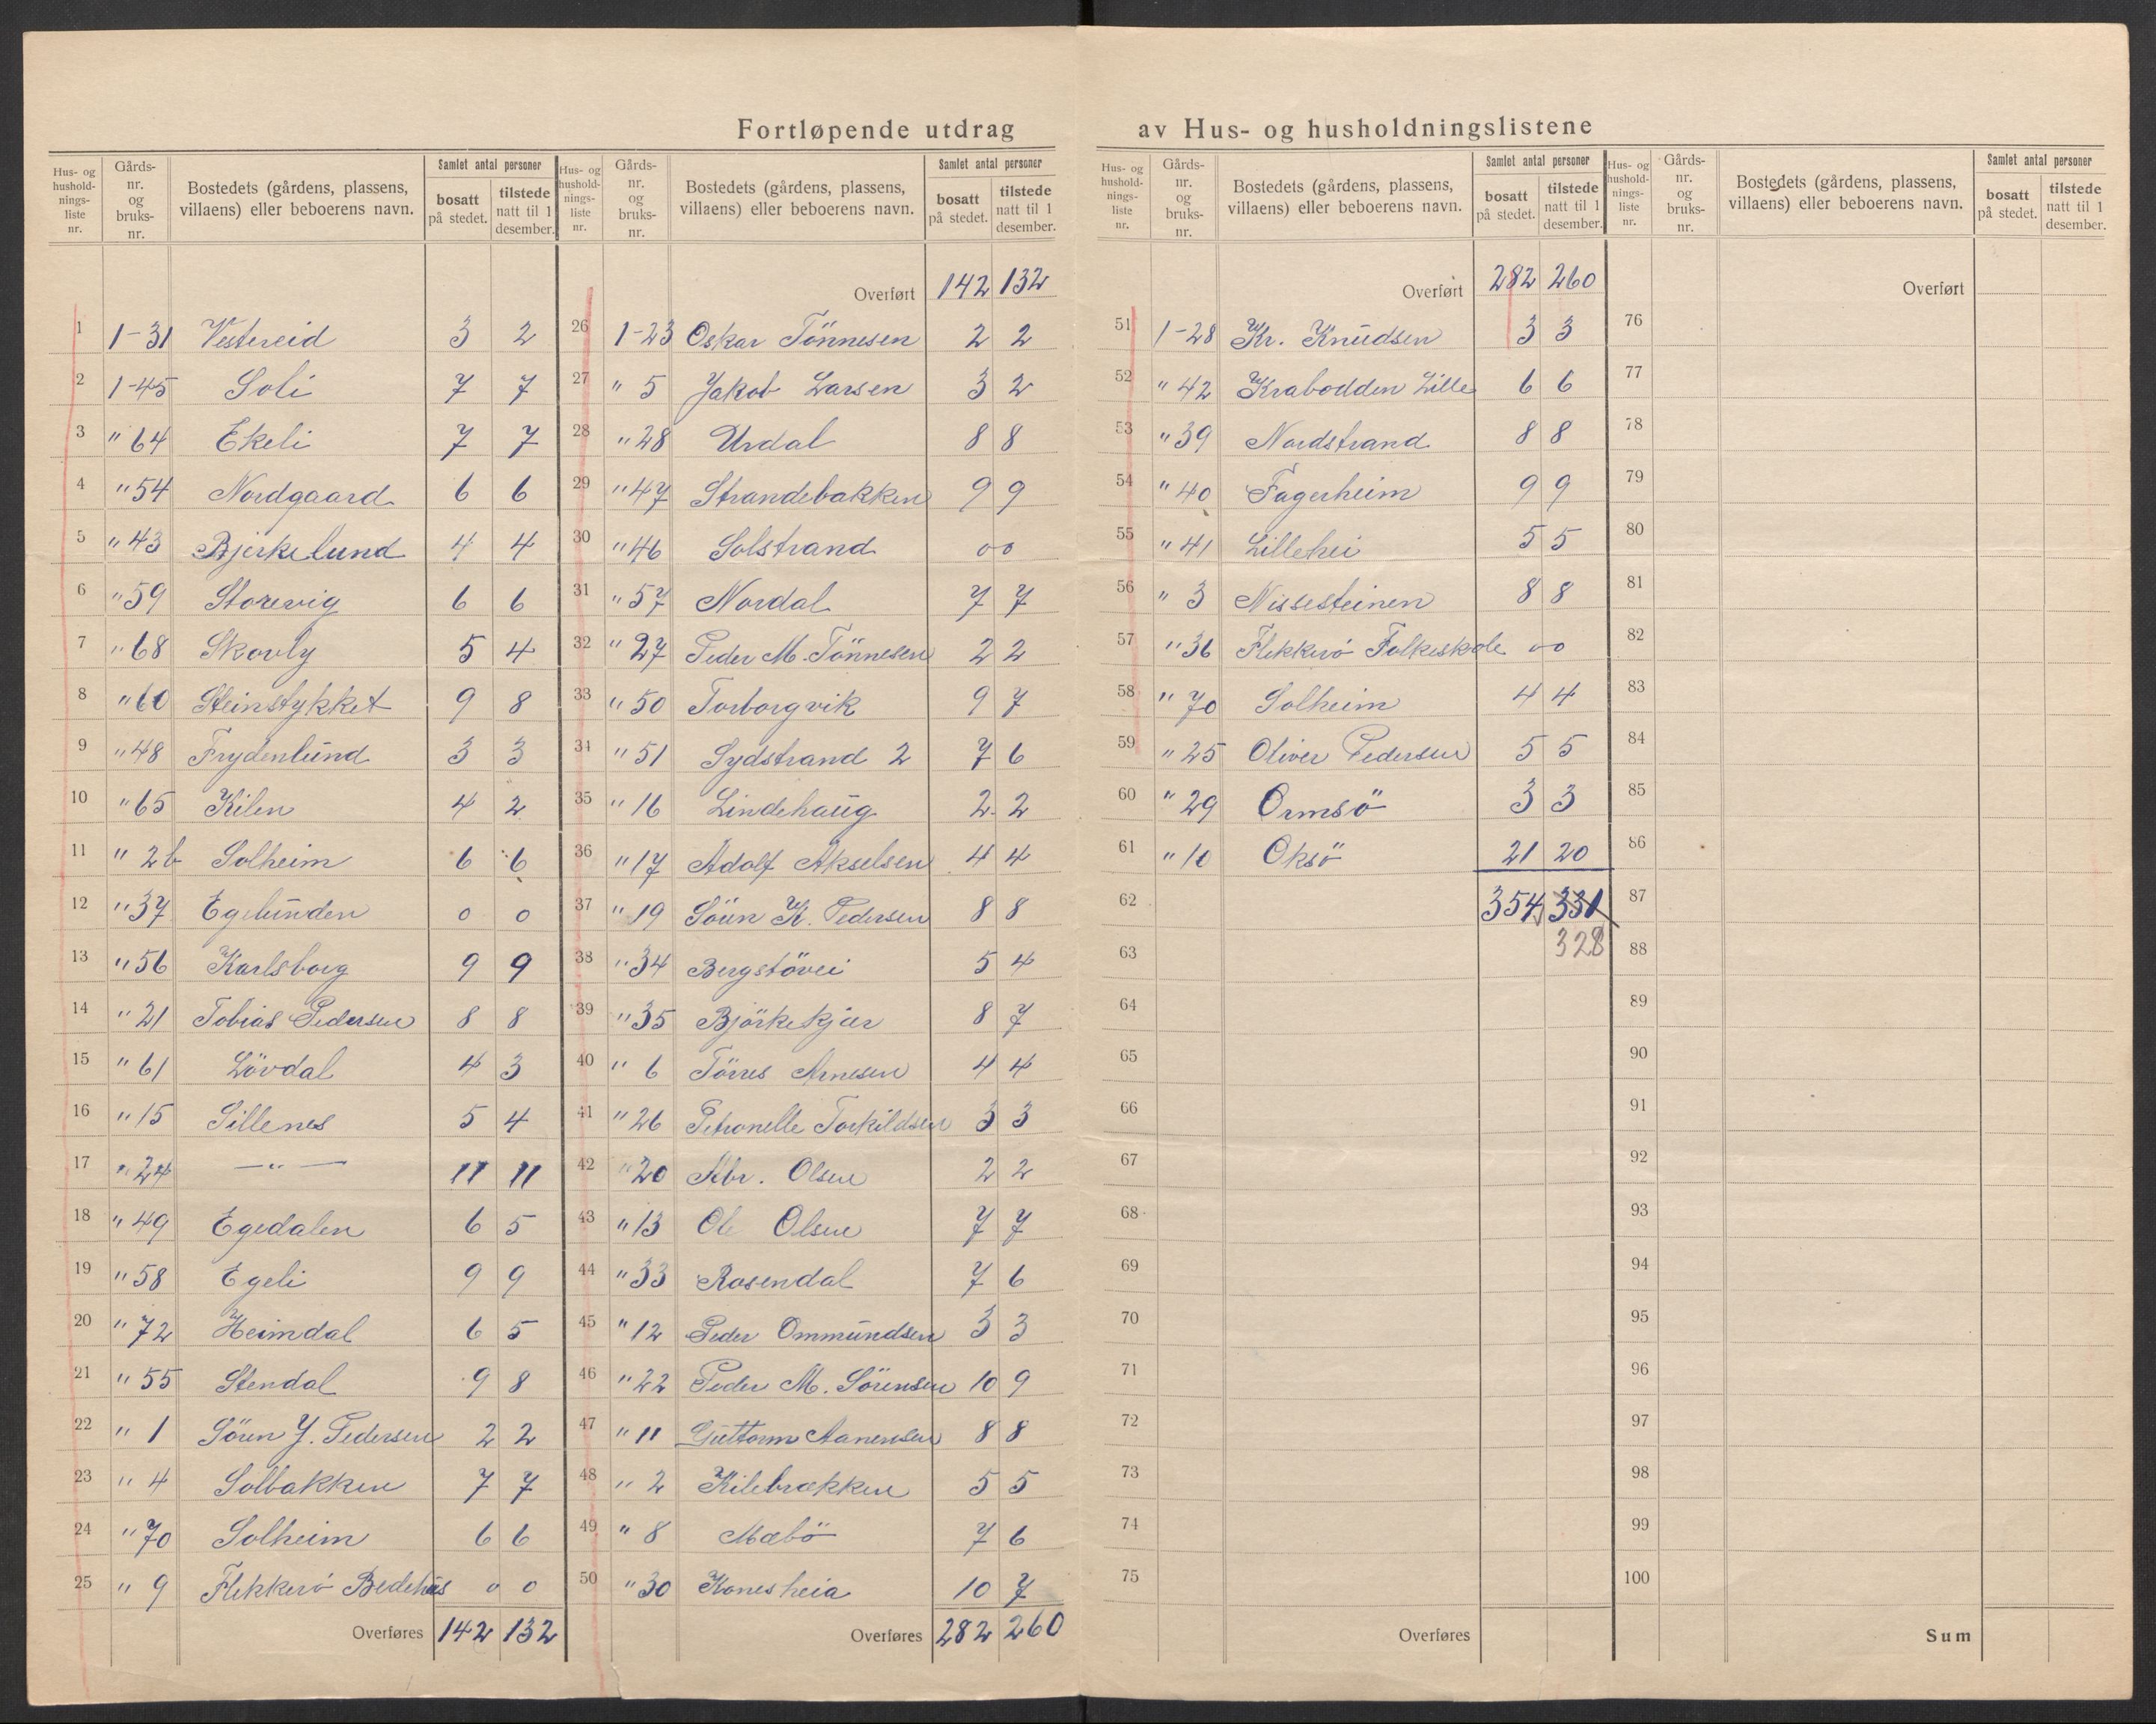 Fortløpende utdrag av Hus- og husholdningslistene
Hus- og hushold-nings-liste nr. Gårds-nr. og bruks-nr. Bostedets (gårdens, plassens, villaens) eller beboerens navn. Samlet antal personer bosatt på stedet. tilstede natt til 1 desember.
1 1-31 Vestereid 3 2
2 1-45 Soli 7 7
3 " 64 Ekeli 7 7
4 " 54 Nordgaard 6 6
5 " 43 Bjerkelund 4 4
6 " 59 Storevig 6 6
7 " 68 Skovly 5 4
8 " 60 Steinstykket 9 8
9 " 48 Frydenlund 3 3
10 " 65 Kilen 4 2
11 " 2b Solheim 6 6
12 " 37 Egelunden 0 0
13 " 56 Karlsborg 9 9
14 " 21 Tobias Pedersen 8 8
15 " 61 Lövdal 4 3
16 " 15 Sillenes 5 4
17 " 24 — " — 11 11
18 " 49 Egedalen 6 5
19 " 58 Egeli 9 9
20 " 72 Heimdal 6 5
21 " 55 Stendal 9 8
22 " 1 Sören Y. Pedersen 2 2
23 " 4 Solbakken 7 7
24 " 70 Solheim 6 6
25 " 9 Flekkerö Bedehus 0 0
Overføres 142 132
Hus- og hushold-nings-liste nr. Gårds-nr. og bruks-nr. Bostedets (gårdens, plassens, villaens) eller beboerens navn. Samlet antal personer bosatt på stedet. tilstede natt til 1 desember.
Overført 142 132
26 1-23 Oskar Tönnesen 2 2
27 " 5 Jakob Larsen 3 2
28 " 28 Urdal 8 8
29 " 47 Strandebakken 9 9
30 " 46 Solstrand 0 0
31 " 57 Nordal 7 7
32 " 27 Peder M. Tönnesen 2 2
33 " 50 Torborgvik 9 7
34 " 51 Sydstrand 2 7 6
35 " 16 Lindehaug 2 2
36 " 17 Adolf Akselsen 4 4
37 " 19 Sören K. Pedersen 8 8
38 " 34 Bergstövei 5 4
39 " 35 Björkekjær 8 7
40 " 6 Törres Arnesen 4 4
41 " 26 Petronelle Torkildsen 3 3
42 " 20 Abr. Olsen 2 2
43 " 13 Ole Olsen 7 7
44 " 33 Rosendal 7 6
45 " 12 Peder Ommundsen 3 3
46 " 22 Peder M. Sörensen 10 9
47 " 11 Guttorm Aanensen 8 8
48 " 2 Kilebrækken 5 5
49 " 8 Mæbö 7 6
50 " 30 Konesheia 10 7
Overføres 282 260
Hus- og hushold-nings-liste nr. Gårds-nr. og bruks-nr. Bostedets (gårdens, plassens, villaens) eller beboerens navn. Samlet antal personer bosatt på stedet. tilstede natt til 1 desember.
Overført 282 260
51 1-28 Kr. Knudsen 3 3
52 " 42 Krabodden Lille 6 6
53 " 39 Nordstrand 8 8
54 " 40 Fagerheim 9 9
55 " 41 Lillehei 5 5
56 " 3 Nissesteinen 8 8
57 " 36 Flekkerö Folkeskole 0 0
58 " 70 Solheim 4 4
59 " 25 Oliver Pedersen 5 5
60 " 29 Ormsö 3 3
61 " 10 Oksö 21 20
62 354 331
63 328
64
65
66
67
68
69
70
71
72
73
74
75
Overføres
Hus- og hushold-nings-liste nr. Gårds-nr. og bruks-nr. Bostedets (gårdens, plassens, villaens) eller beboerens navn. Samlet antal personer bosatt på stedet. tilstede natt til 1 desember.
Overført
76
77
78
79
80
81
82
83
84
85
86
87
88
89
90
91
92
93
94
95
96
97
98
99
100
Sum